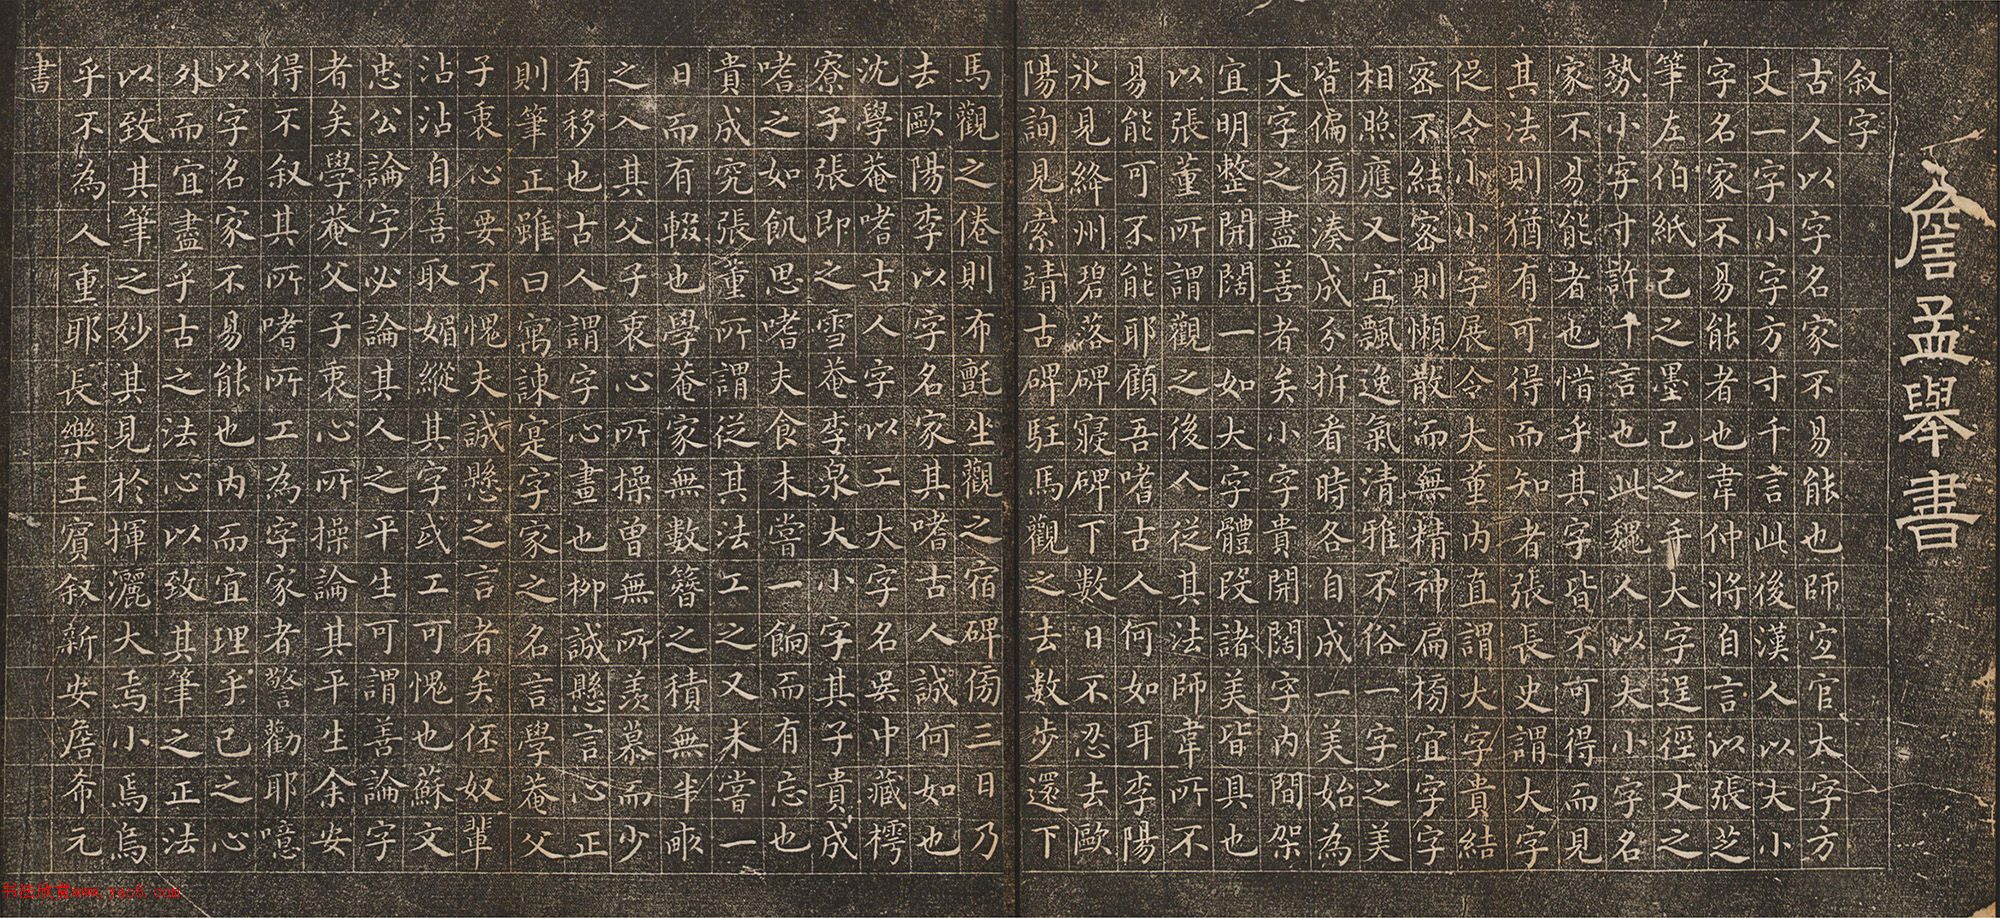 詹孟舉書
叙字
古人以字名家不易能也師宜官大字方
丈一字小字方寸千言此後漢人以大小
字名家不易能者也韋仲將自言以張芝
筆左伯紙己之墨己之手大字逞徑丈之
勢小字寸許千言也此魏人以大小字名
家不易能者也惜乎其字皆不可得而見
其法則猶有可得而知者張長史謂大字
促令小小字展令大董内直謂大字貴結
密不結密則懶散而無精神扁榜宜字字
相照應又宜飄逸氣清雅不俗一字之美
皆偏傍湊成分拆看時各自成一美始為
大字之盡善者矣小字貴開闊字内間架
宜明整開闊一如大字體段諸美皆具也
以張董所謂觀之後人從其法師韋所不
易能可不能耶顧吾嗜古人何如耳李陽
氷見絳州碧落碑寢碑下數日不忍去歐
陽詢見索靖古碑駐馬觀之去數步還下
馬觀之倦則布氈坐觀之宿碑傍三日乃
去歐陽李以字名家其嗜古人誠何如也
沈學菴嗜古人字以工大字名吳中藏樗
寮子張即之雪菴李泉大小字其子貴成
嗜之如飢思嗜夫食未嘗一餉而有忘也
貴成究張董所謂從其法工之又未嘗一
日而有輟也學菴家無數簪之積無半畝
之入其父子衷心所操曾無所羨慕而少
有移也古人謂字心畫也柳誠懸言心正
則筆正雖曰寓諫寔字家之名言學菴父
子衷心要不愧夫誠懸之言者矣伾奴輩
沾沾自喜取媚縱其字或工可愧也蘇文
忠公論字必論其人之平生可謂善論字
者矣學菴父子衷心所操論其平生余安
得不叙其所嗜所工為字家者警勸耶噫
以字名家不易能也内而宜理乎己之心
外而宜盡乎古之法心以致其筆之正法
以致其筆之妙其見於揮灑大焉小焉烏
乎不為人重耶長樂王賔叙新安詹希元
書
书法欣赏www.yac8.com